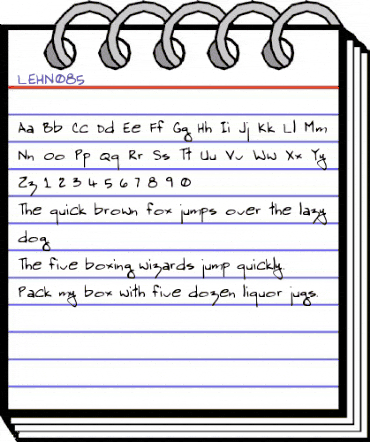 LEHN085
Aa Bb Cc Dd Ee Ff Gg Hh Ii Jj Kk Ll Mm
Nn Oo Pp Qq Rr Ss Tt Uu Vv Ww Xx Yy
Zz 1 2 3 4 5 6 7 8 9 0
The quick brown fox jumps over the lazy
dog.
The five boxing wizards jump quickly.
Pack my box with five dozen liquor jugs.